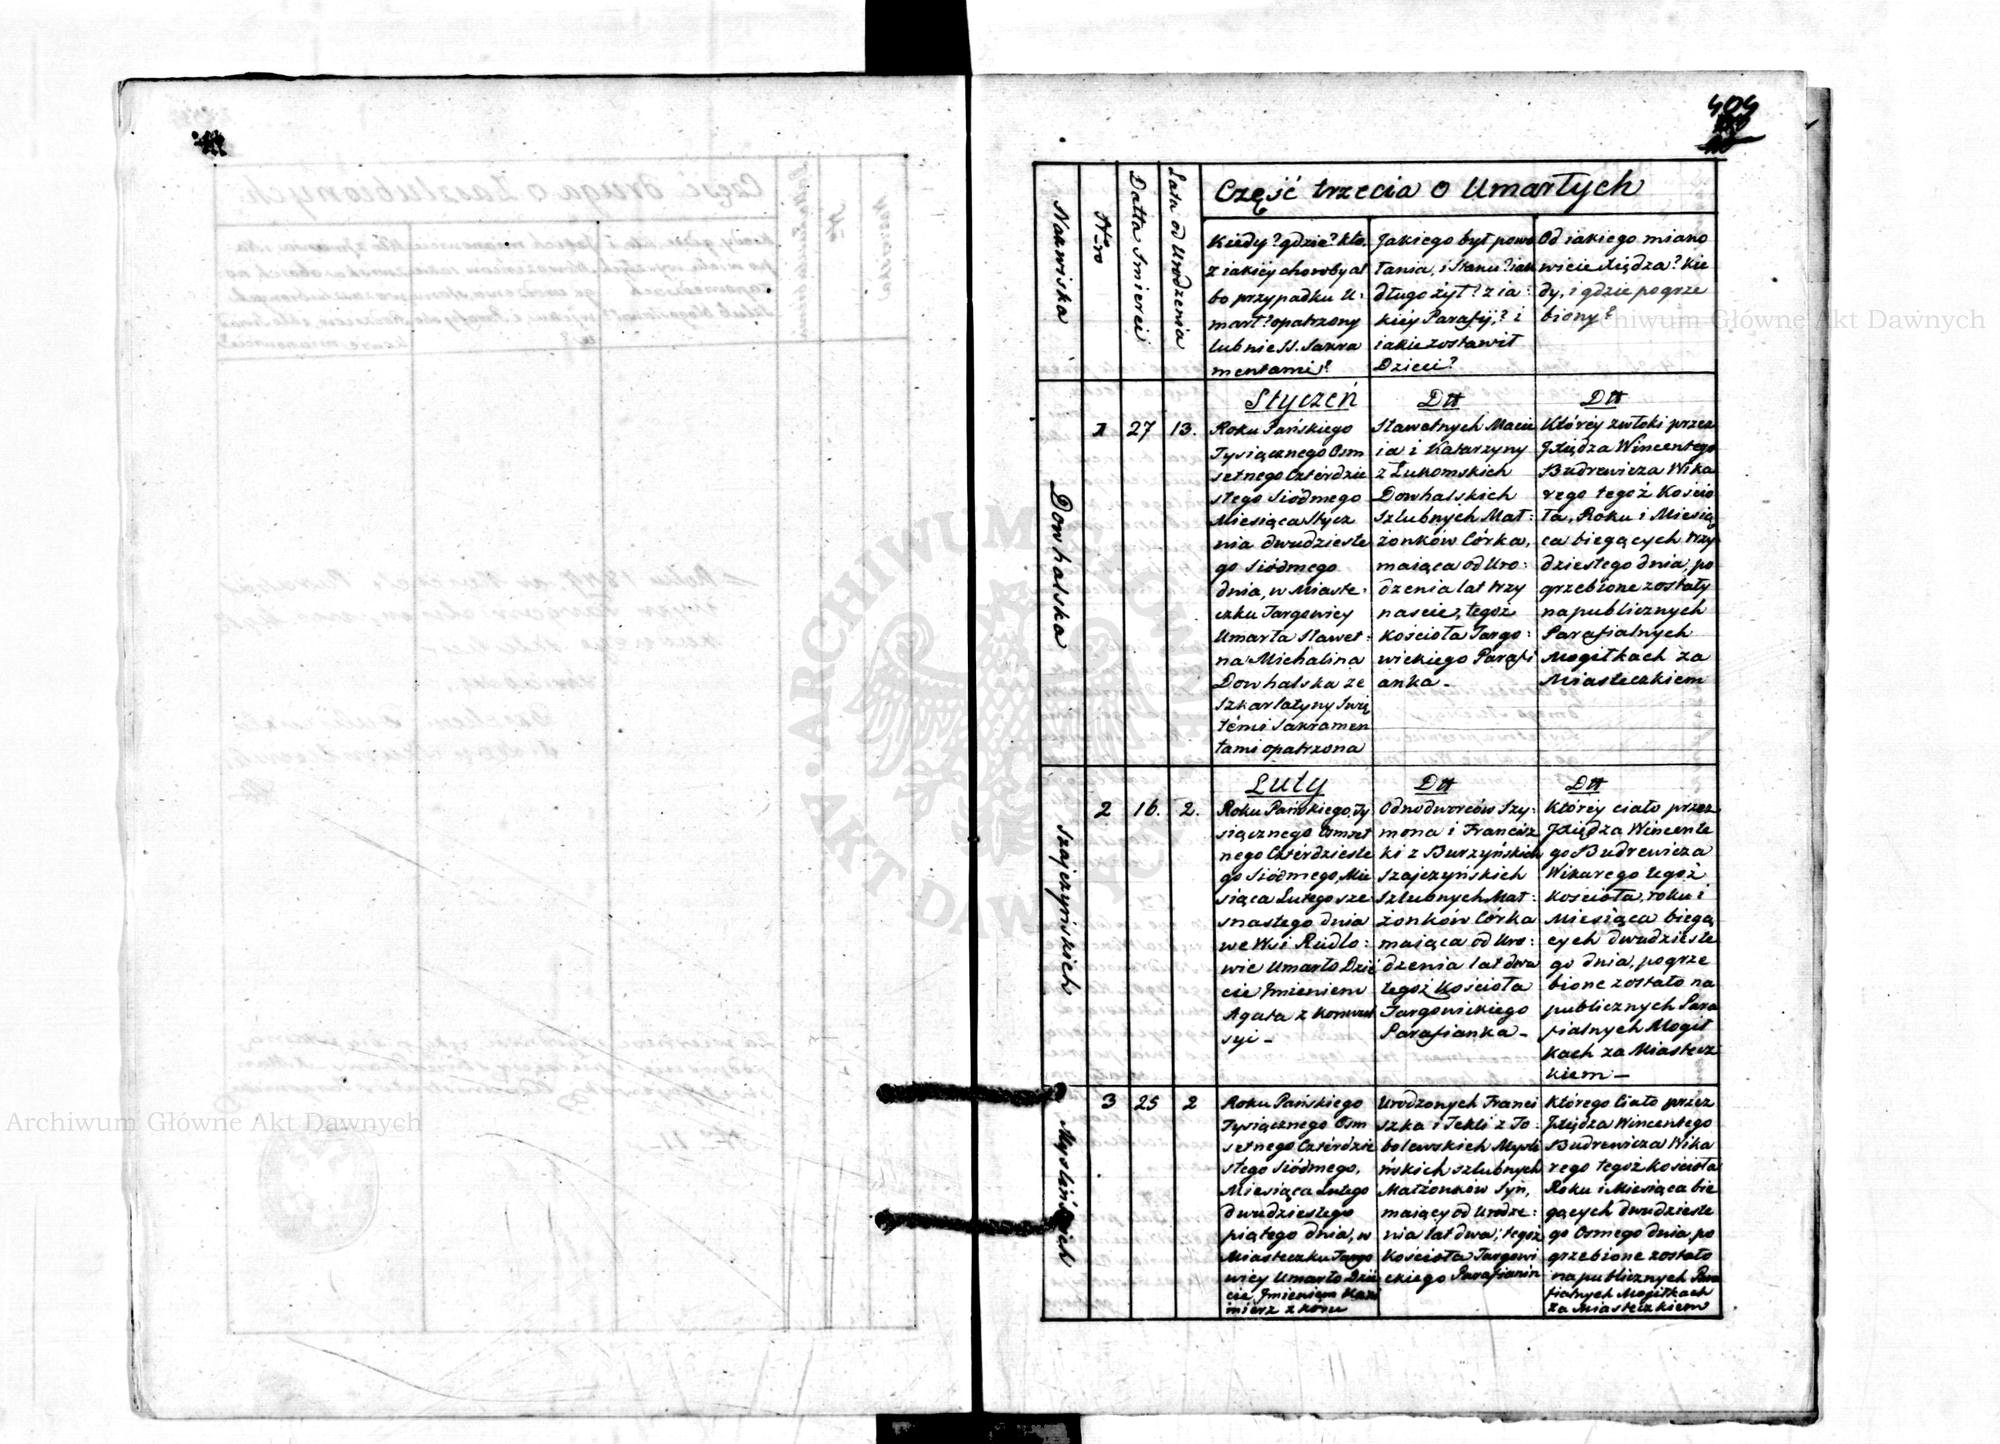 404
Część trzecia o Umarłych
Nazwiska
Nro
Datta Śmierci
Lata od Urodzenia
Kiedy? gdzie? kto,
z iakiéy choroby al
bo przypadku U:
marł? opatrzony
lub nie SS. Sakra
mentami?
Jakiego był powo
łania, i Stanu? iak
długo żył? z ia:
kiéy Parafij? i
iakie zostawił
Dzieci?
Od iakiego miano
wicie Xiędza? Kie
dy, i gdzie pogrze
biony?
Dowhalska
1
27
13.
Styczeń
Roku Pańskiego
Tysiącznego Osm
setnego Cztérdzie
stego Siódmego
Miesiąca Stycz
nia dwudzieste
go Siódmego
dnia, w Miaste:
czku Targowicy
Umarła Sławet:
na Michalina
Dowhalska ze
Szkarlatyny Świę
témi Sakramen
tami opatrzona
Dtt
Sławetnych Macie
ia i Katarzyny
z Łukomskich
Dowhalskich
Szlubnych Mał:
żonków Córka,
maiąca od Uro:
dzenia lat trzy
naście, tegoż
Kościoła Targo:
wickiego Parafi
anka -
Dtt
Któréy zwłoki przez
Xiędza Wincentego
Budrewicza Wika
rego tegoż Kościo
ła, Roku i Miesią
ca biegących trzy
dziestego dnia, po
grzebione zostały
na publicznych
Parafialnych
Mogiłkach za
Miasteczkiem
Szajczyńskich
2
16.
2.
Luty
Roku Pańskiego, Ty
siącznego Osmset
nego Cztérdzieste
go Siódmego, Mie
siąca Lutego sze
snastego dnia
we Wsi Rudło:
wie Umarło Dzie
cie Imieniem
Agata z Konwul
syi -
Dtt
Odnodworców Szy:
mona i Francisz
ki z Burzyńskich
Szajczyńskich
Szlubnych Mał:
żonków Córka
maiąca od Uro:
dzenia lat dwa
tegoż Kościoła
Targowickiego
Parafianka -
Dtt
Któréy ciało przez
Xiędza Wincente
go Budrewicza
Wikarego tegoż
Kościoła, roku i
Miesiąca biegą
cych dwudzieste
go dnia, pogrze
bione zostało na
publicznych Para
fialnych Mogił
kach za Miastecz
kiem -
Myślińskich
3
25
2
Roku Pańskiego
Tysiącznego Osm
setnego Cztérdzie
stego Siódmego,
Miesiąca Lutego
dwudziestego
piątego dnia, w
Miasteczku Targo
wicy Umarło Dzie
cie Imieniem Kazi
mierz z konu
Urodzonych Franci
szka i Tekli z To:
bolewskich Myśli
ńskich szlubnych
Małżonków Syn,
maiący od Urodze:
nia lat dwa, tegoż
Kościoła Targowi
ckiego Parafianin
Którego Ciało przez
Xiędza Wincentego
Budrewicza Wika
rego tegoż Kościoła
Roku i Miesiąca bie
gących dwudzieste
go Osmego dnia, po
grzebione zostało
na publicznych Para
fialnych Mogiłkach
za Miasteczkiem
Archiwum Główne Akt Dawnych
Archiwum Główne Akt Dawnych
ARCHIWUM GŁÓWNE
AKT DAWNYCH